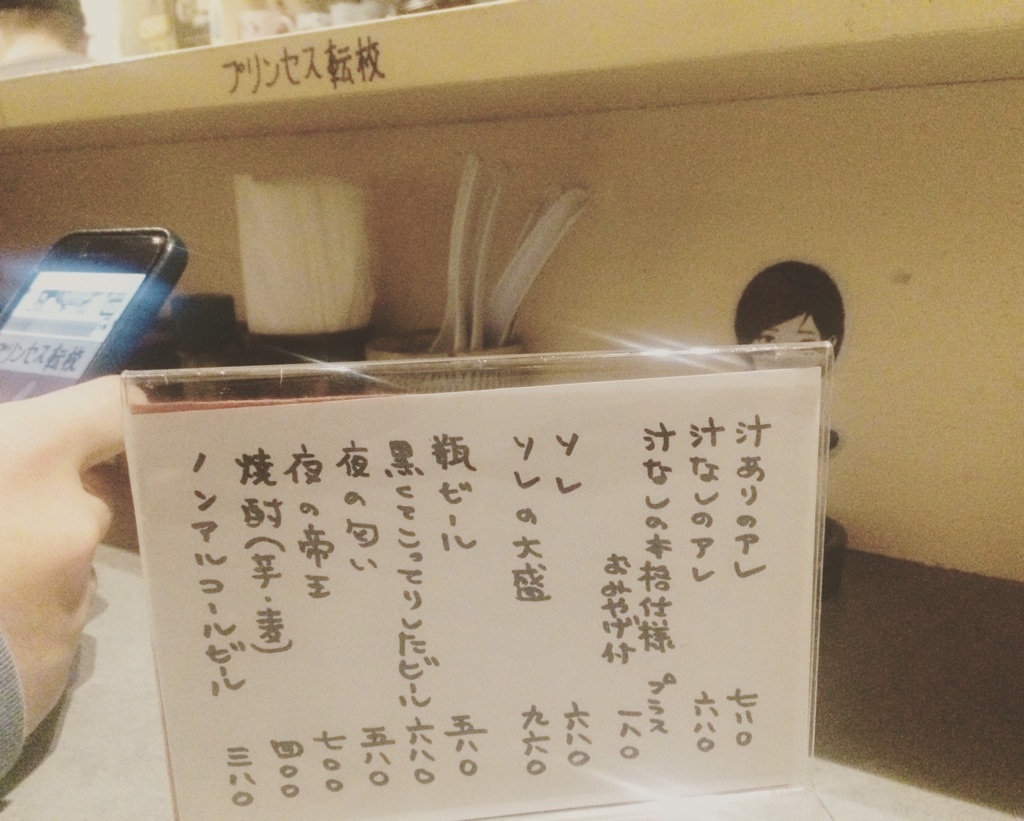 プリンセス転校
プリンセス転校
汁ありのアレ 七八〇
汁なしのアレ 六八〇
汁なしの本格仕様 プラス
おみやげ付 一八〇
ソレ 六八〇
ソレの大盛 九六〇
瓶ビール 五八〇
黒くてこってりしたビール 六八〇
夜の匂い 五八〇
夜の帝王 七〇〇
焼酎(芋・麦) 四〇〇
ノンアルコールビール 三八〇